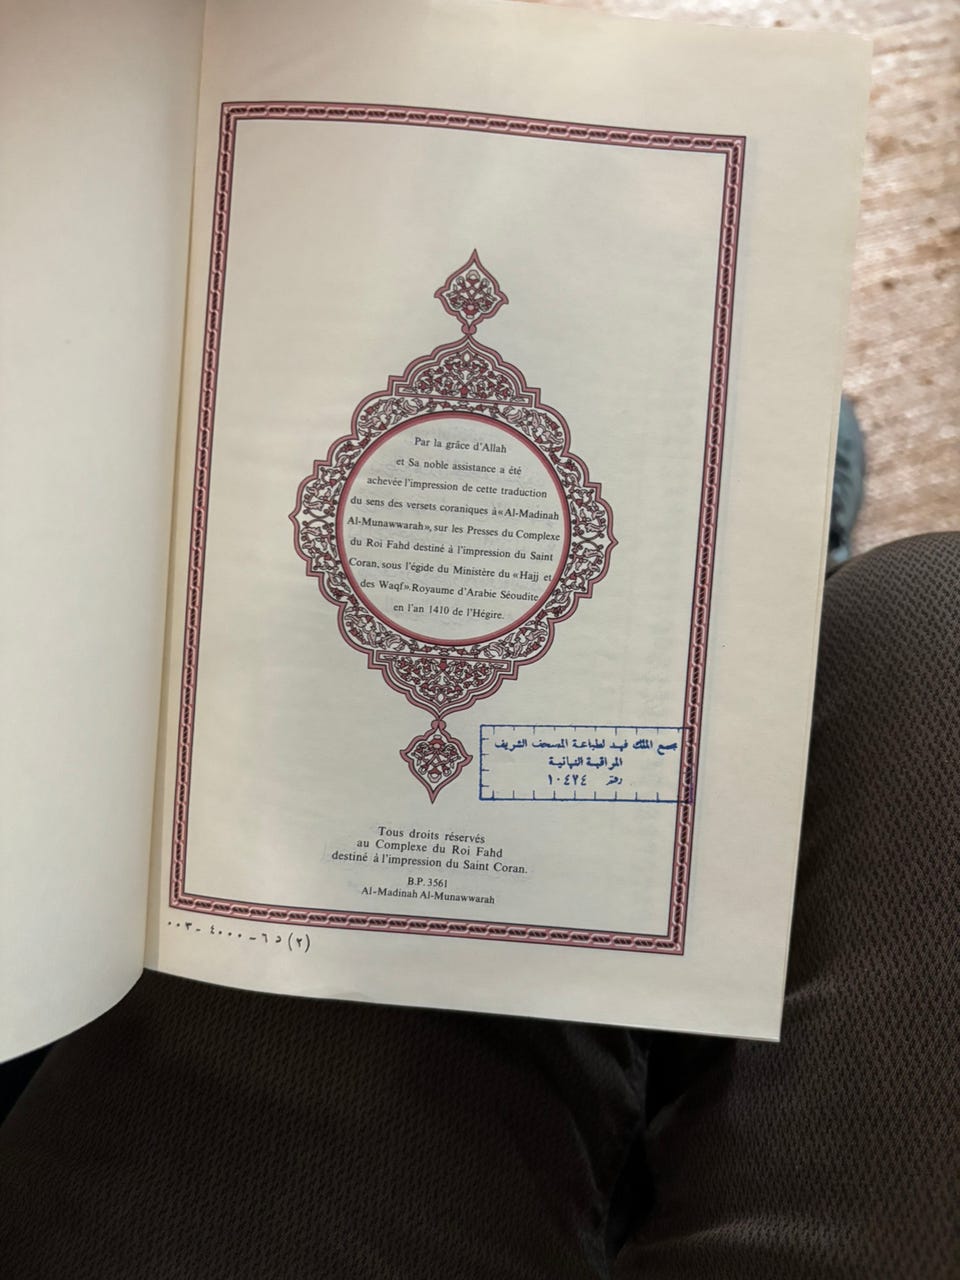 Par la grâce d'Allah
et Sa noble assistance a été
achevée l'impression de cette traduction
du sens des versets coraniques à «Al-Madinah
Al-Munawwarah», sur les Presses du Complexe
du Roi Fahd destiné à l'impression du Saint
Coran, sous l'égide du Ministère du «Hajj et
des Waqf». Royaume d'Arabie Séoudite
en l'an 1410 de l'Hégire.
مجمع الملك فهد لطباعة المصحف الشريف
المراقبة النهائية
رقم ١٠٤٢٤
Tous droits réservés
au Complexe du Roi Fahd
destiné à l'impression du Saint Coran.
B.P. 3561
Al-Madinah Al-Munawwarah